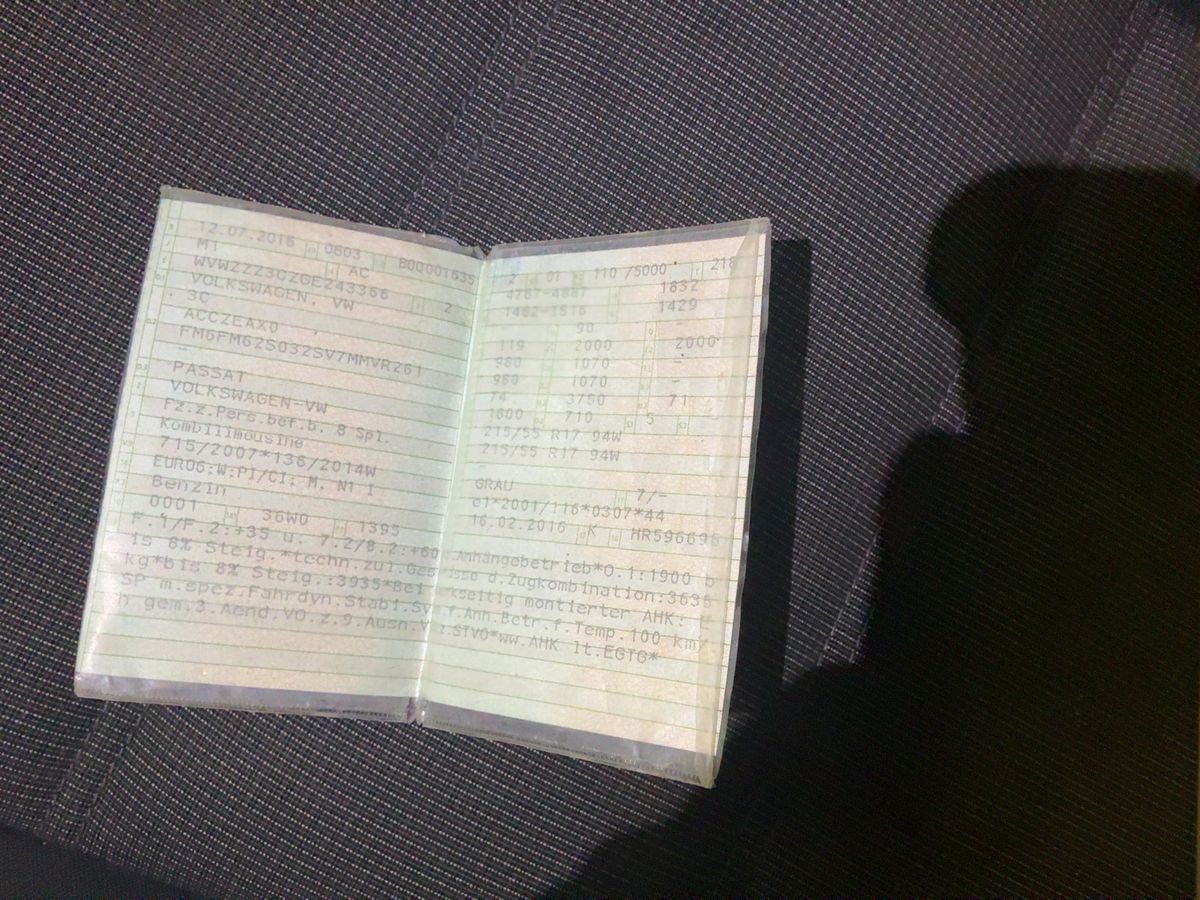 12.07.2016 0603 B00001635
M1 AC
WVWZZZ3CZGE243356 2
VOLKSWAGEN, VW
3C
ACCZEAX0
FM6FM62S032SV7MMVR261
-
PASSAT
VOLKSWAGEN-VW
Fz.z.Pers.bef.b. 8 Spl.
Kombilimousine
715/2007*136/2014W
EURO6;W;PI/CI; M, N1 I
Benzin
0001 36W0 1395
F.1/F.2:+35 u. 7.2/8.2:+60
is 8% Steig.*techn.zul.Ges
kg*bis 8% Steig.:3935*Bei
SP m.spez.Fahrdyn.Stabi.Sy
h gem.3.Aend.VO.z.9.Ausn.V
2 01 110 /5000 218
4767-4887 1832
1462-1516 1429
90 -
119 2000 2000
980 1070 -
980 1070 -
74 3750 71
1600 710 5
215/55 R17 94W
215/55 R17 94W
-
GRAU 7/-
e1*2001/116*0307*44
16.02.2016 K HR596696
.Anhängebetrieb*O.1:1900 b
sse d.Zugkombination:3635
kseitig montierter AHK:
f.Anh.Betr.f.Temp.100 km/
z.STVO*ww.AHK lt.EGTG*